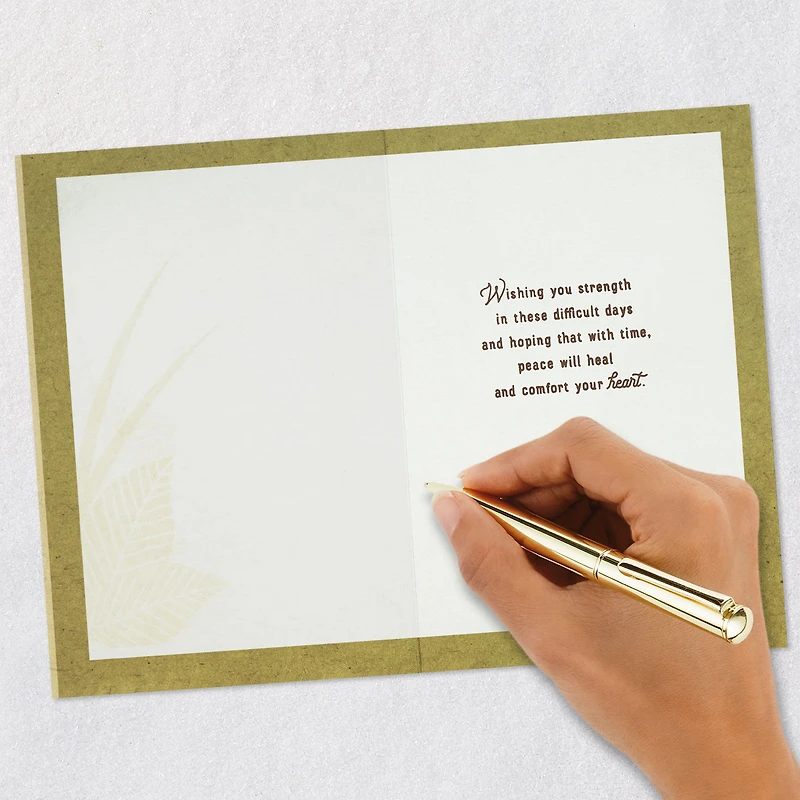 Wishing you strength
in these difficult days
and hoping that with time,
peace will heal
and comfort your heart.